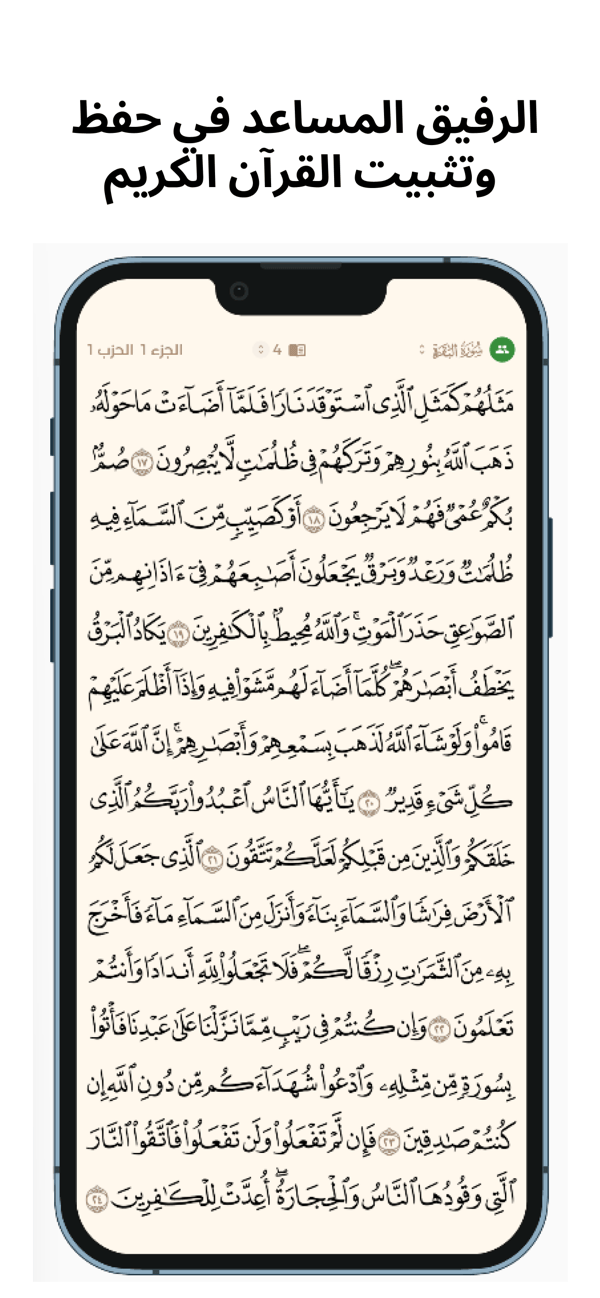 الرفيق المساعد في حفظ
وتثبيت القرآن الكريم
سُورَةُ البَقَرَةِ 4 الجزء 1 الحزب 1
مَثَلُهُمۡ كَمَثَلِ ٱلَّذِي ٱسۡتَوۡقَدَ نَارٗا فَلَمَّآ أَضَآءَتۡ مَا حَوۡلَهُۥ
ذَهَبَ ٱللَّهُ بِنُورِهِمۡ وَتَرَكَهُمۡ فِي ظُلُمَٰتٖ لَّا يُبۡصِرُونَ ١٧ صُمُّۢ
بُكۡمٌ عُمۡيٞ فَهُمۡ لَا يَرۡجِعُونَ ١٨ أَوۡ كَصَيِّبٖ مِّنَ ٱلسَّمَآءِ فِيهِ
ظُلُمَٰتٞ وَرَعۡدٞ وَبَرۡقٞ يَجۡعَلُونَ أَصَٰبِعَهُمۡ فِيٓ ءَاذَانِهِم مِّنَ
ٱلصَّوَٰعِقِ حَذَرَ ٱلۡمَوۡتِۚ وَٱللَّهُ مُحِيطُۢ بِٱلۡكَٰفِرِينَ ١٩ يَكَادُ ٱلۡبَرۡقُ
يَخۡطَفُ أَبۡصَٰرَهُمۡۖ كُلَّمَآ أَضَآءَ لَهُم مَّشَوۡاْ فِيهِ وَإِذَآ أَظۡلَمَ عَلَيۡهِمۡ
قَامُواْۚ وَلَوۡ شَآءَ ٱللَّهُ لَذَهَبَ بِسَمۡعِهِمۡ وَأَبۡصَٰرِهِمۡۚ إِنَّ ٱللَّهَ عَلَىٰ
كُلِّ شَيۡءٖ قَدِيرٞ ٢٠ يَٰٓأَيُّهَا ٱلنَّاسُ ٱعۡبُدُواْ رَبَّكُمُ ٱلَّذِي
خَلَقَكُمۡ وَٱلَّذِينَ مِن قَبۡلِكُمۡ لَعَلَّكُمۡ تَتَّقُونَ ٢١ ٱلَّذِي جَعَلَ لَكُمُ
ٱلۡأَرۡضَ فِرَٰشٗا وَٱلسَّمَآءَ بِنَآءٗ وَأَنزَلَ مِنَ ٱلسَّمَآءِ مَآءٗ فَأَخۡرَجَ
بِهِۦ مِنَ ٱلثَّمَرَٰتِ رِزۡقٗا لَّكُمۡۖ فَلَا تَجۡعَلُواْ لِلَّهِ أَندَادٗا وَأَنتُمۡ
تَعۡلَمُونَ ٢٢ وَإِن كُنتُمۡ فِي رَيۡبٖ مِّمَّا نَزَّلۡنَا عَلَىٰ عَبۡدِنَا فَأۡتُواْ
بِسُورَةٖ مِّن مِّثۡلِهِۦ وَٱدۡعُواْ شُهَدَآءَكُم مِّن دُونِ ٱللَّهِ إِن
كُنتُمۡ صَٰدِقِينَ ٢٣ فَإِن لَّمۡ تَفۡعَلُواْ وَلَن تَفۡعَلُواْ فَٱتَّقُواْ ٱلنَّارَ
ٱلَّتِي وَقُودُهَا ٱلنَّاسُ وَٱلۡحِجَارَةُۖ أُعِدَّتۡ لِلۡكَٰفِرِينَ ٢٤